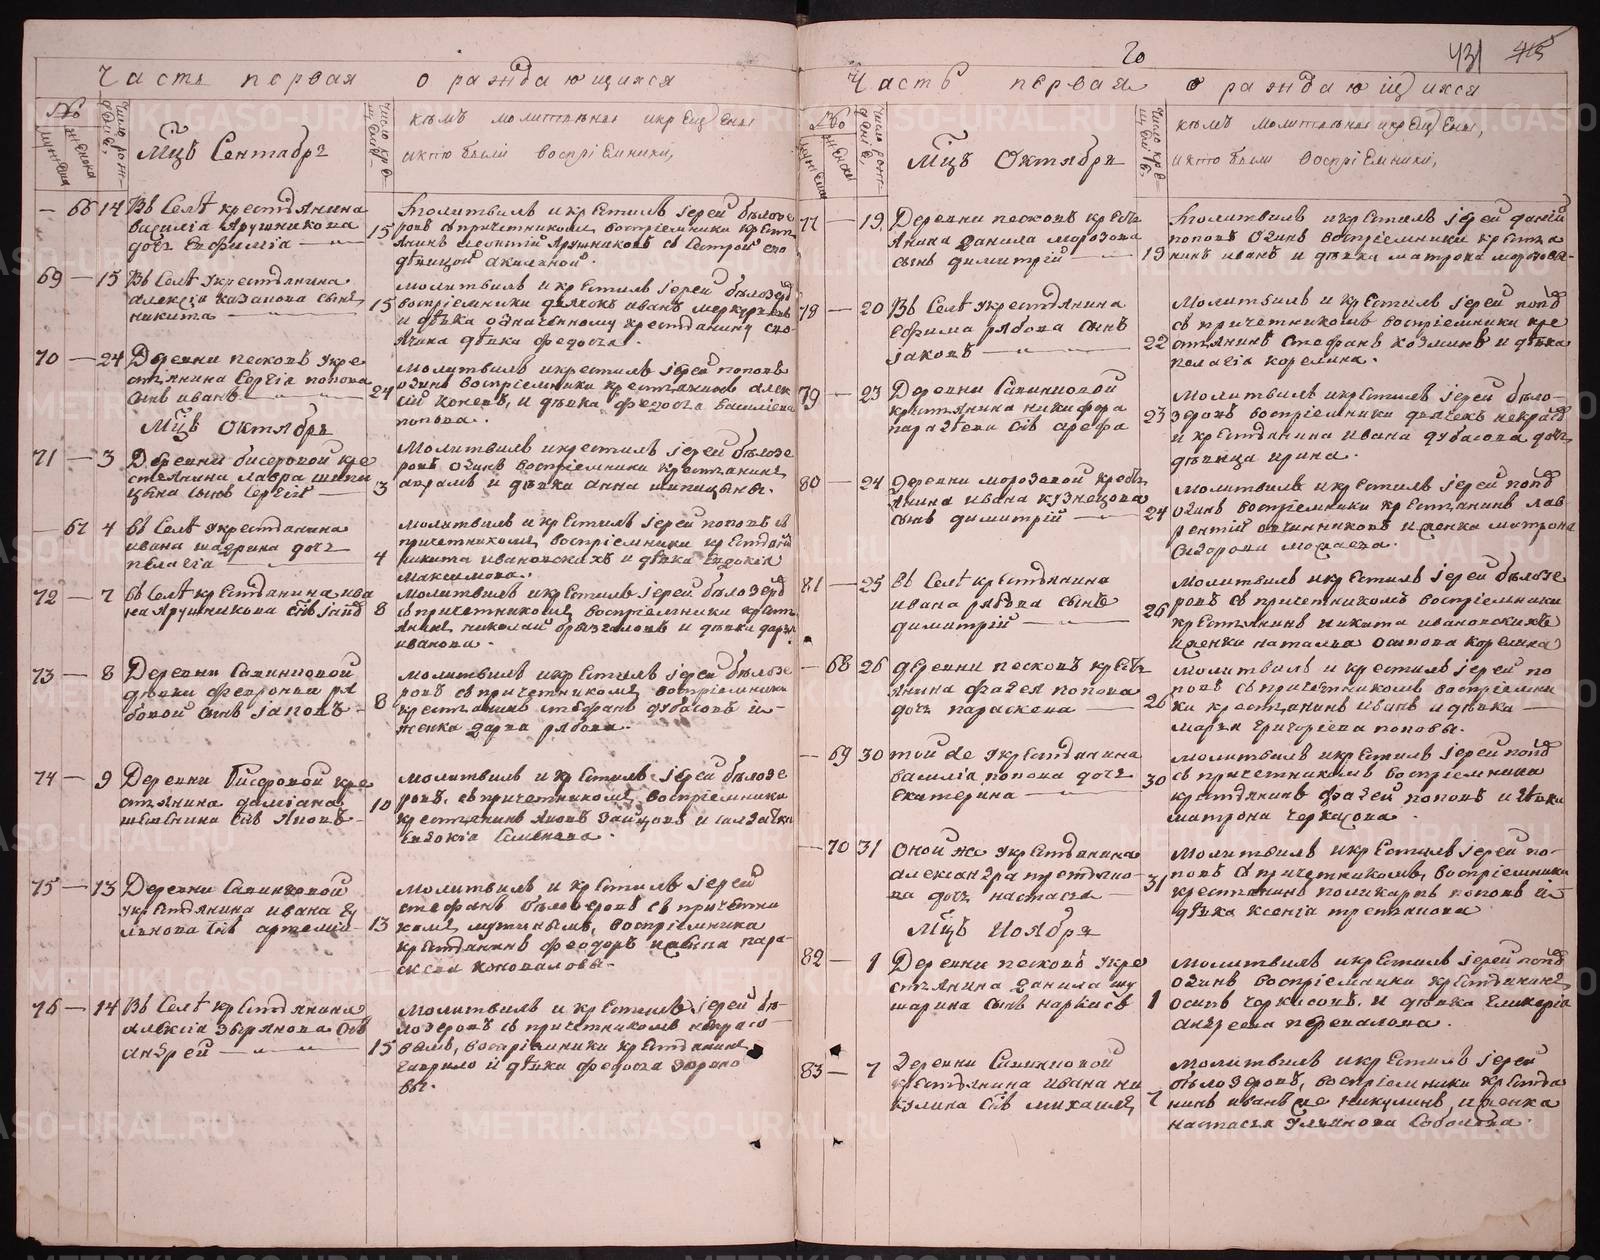 Часть первая о раждающихся
№
Число рож-
Число кре-
Мцъ Сентябрь
кѣмъ молитвлены и крещены,
и кто были воспріемники,
— 66 14 Въ Селѣ крестьянина
Василія Ярушникова
дочь Евфимія
15
Молитвилъ и крестилъ Іерей бѣлозе
ровъ съ причетникомъ воспріемники крест
янинъ Леонтій Ярушниковъ съ сестрой ево
дѣвицой акилиной.
69 — 15 Въ Селѣ у крестьянина
алексія казакова сынъ
никита
15
молитвилъ и крестилъ Іерей бѣлозер
воспріемники дьячокъ иванъ меркурьевъ
и дѣвка означенному крестьянину
дѣвка федосья.
70 — 24 Деревни песковъ укре
стьянина Сергія попова
сынъ иванъ
24
молитвилъ и крестилъ Іерей поповъ
одинъ воспріемники крестьянинъ алек
сій коневъ, и дѣвка федосья василіева
попова.
Мцъ Октябрь
71 — 3 Деревни бисеровой кре
стьянина лавра шипи
цына сынъ Сергій
3
Молитвилъ и крестилъ Іерей бѣлозе
ровъ одинъ воспріемники крестьянинъ
авраамъ и дѣвка анна шипицыны.
— 67 4 въ Селѣ укрестьянина
ивана шаврина дочь
пелагія
4
молитвилъ и крестилъ Іерей поповъ съ
причетникомъ, воспріемники крестьянинъ
никита ивановскихъ и дѣвка евдокія
максимова.
72 — 7 въ Селѣ крестьянина ива
на Ярушникова
8
молитвилъ и крестилъ Іерей бѣлозер
съ причетникомъ, воспріемники крест
янинъ николай брызгаловъ и дѣвка дарья
иванова.
73 — 8 Деревни Савиновой
дѣвки февроньи ря
бовой сынъ Іаковъ
8
молитвилъ и крестилъ Іерей бѣлозе
ровъ съ причетникомъ, воспріемники
крестьянинъ стефанъ дубасовъ и
женка дарья рябова.
74 — 9 Деревни Бисеровой кре
стьянина даміана
10
молитвилъ и крестилъ Іерей бѣлозе
ровъ, съ причетникомъ, воспріемники
крестьянинъ Яковъ зайцовъ и солдатка
евдокія Семенова.
75 — 13 Деревни Савиновой
укрестьянина ивана
артемій
13
молитвилъ и крестилъ Іерей
стефанъ бѣлозеровъ съ причетни
комъ мутинымъ, воспріемника
крестьянинъ феодоръ и дѣвка пара-
скева коноваловы.
76 — 14 Въ Селѣ крестьянина
алексія зырянова сынъ
андрей
15
молитвилъ и крестилъ Іерей бѣ-
лозеровъ съ причетникомъ некрасо
вымъ, воспріемники крестьянинъ
гаврило и дѣвка федосья
вы.
20
431 415
Часть первая о раждающихся
№
Число рож-
Число кре-
Мцъ Октябрь
кѣмъ молитвлены и крещены,
и кто были воспріемники,
77 — 19 Деревни песковъ кресть
янина данила морозова
сынъ димитрій
19
Молитвилъ и крестилъ Іерей
поповъ одинъ воспріемники крестья
нинъ иванъ и дѣвка матрона морозовы.
78 — 20 Въ Селѣ укрестьянина
ефима рябова сынъ
Іаковъ
22
молитвилъ и крестилъ Іерей попов
съ причетникомъ воспріемники кре
стьянинъ Стефанъ козминъ и дѣвка
пелагія корелина.
79 — 23 Деревни Савиновой
крестьянина никифора
23
молитвилъ и крестилъ Іерей бѣло-
зеровъ воспріемники дьячекъ некрасов
и крестьянина ивана дубасова дочь
дѣвица ирина.
80 — 24 Деревни морозовой кресть
янина ивана кузнецова
сынъ димитрій
24
молитвилъ и крестилъ Іерей попов
одинъ воспріемники крестьянинъ лав
рентій овчинниковъ и женка матрона
Сидорова
81 — 25 въ Селѣ крестьянина
ивана рябова сынъ
димитрій
26
молитвилъ и крестилъ Іерей бѣлозе
ровъ съ причетникомъ воспріемники
крестьянинъ никита ивановскихъ
и женка наталья осипова корелина
— 68 26 деревни песковъ кресть
янина фадея попова
дочь параскева
26
молитвилъ и крестилъ Іерей по
повъ съ причетникомъ воспріемни
ки крестьянинъ иванъ и дѣвка
марья григоріева поповы.
— 69 30 той де укрестьянина
василія попова дочь
екатерина
30
молитвилъ и крестилъ Іерей попов
съ причетникомъ воспріемника
крестьянинъ фадей поповъ и дѣвка
матрона черкасова.
— 70 31 Оной же укрестьянина
александра третьяко-
ва дочь настасья
31
молитвилъ и крестилъ Іерей по-
повъ съ причетникомъ, воспріемники
крестьянинъ поликарпъ поповъ и
дѣвка ксенія третьякова
Мцъ Ноябрь
82 — 1 Деревни песковъ укре
стьянина данила шу
шарина сынъ наркисъ
1
молитвилъ и крестилъ Іерей попов
одинъ воспріемники крестьянинъ
осипъ черкасовъ, и дѣвка гликерія
андреева перевалова.
83 — 7 Деревни Савиновой
крестьянина ивана ни
кулина сынъ михаилъ
7
молитвилъ и крестилъ Іерей
бѣлозеровъ, воспріемники крестья
нинъ иванъ же никулинъ, и женка
настасья Ульянова Соболева.